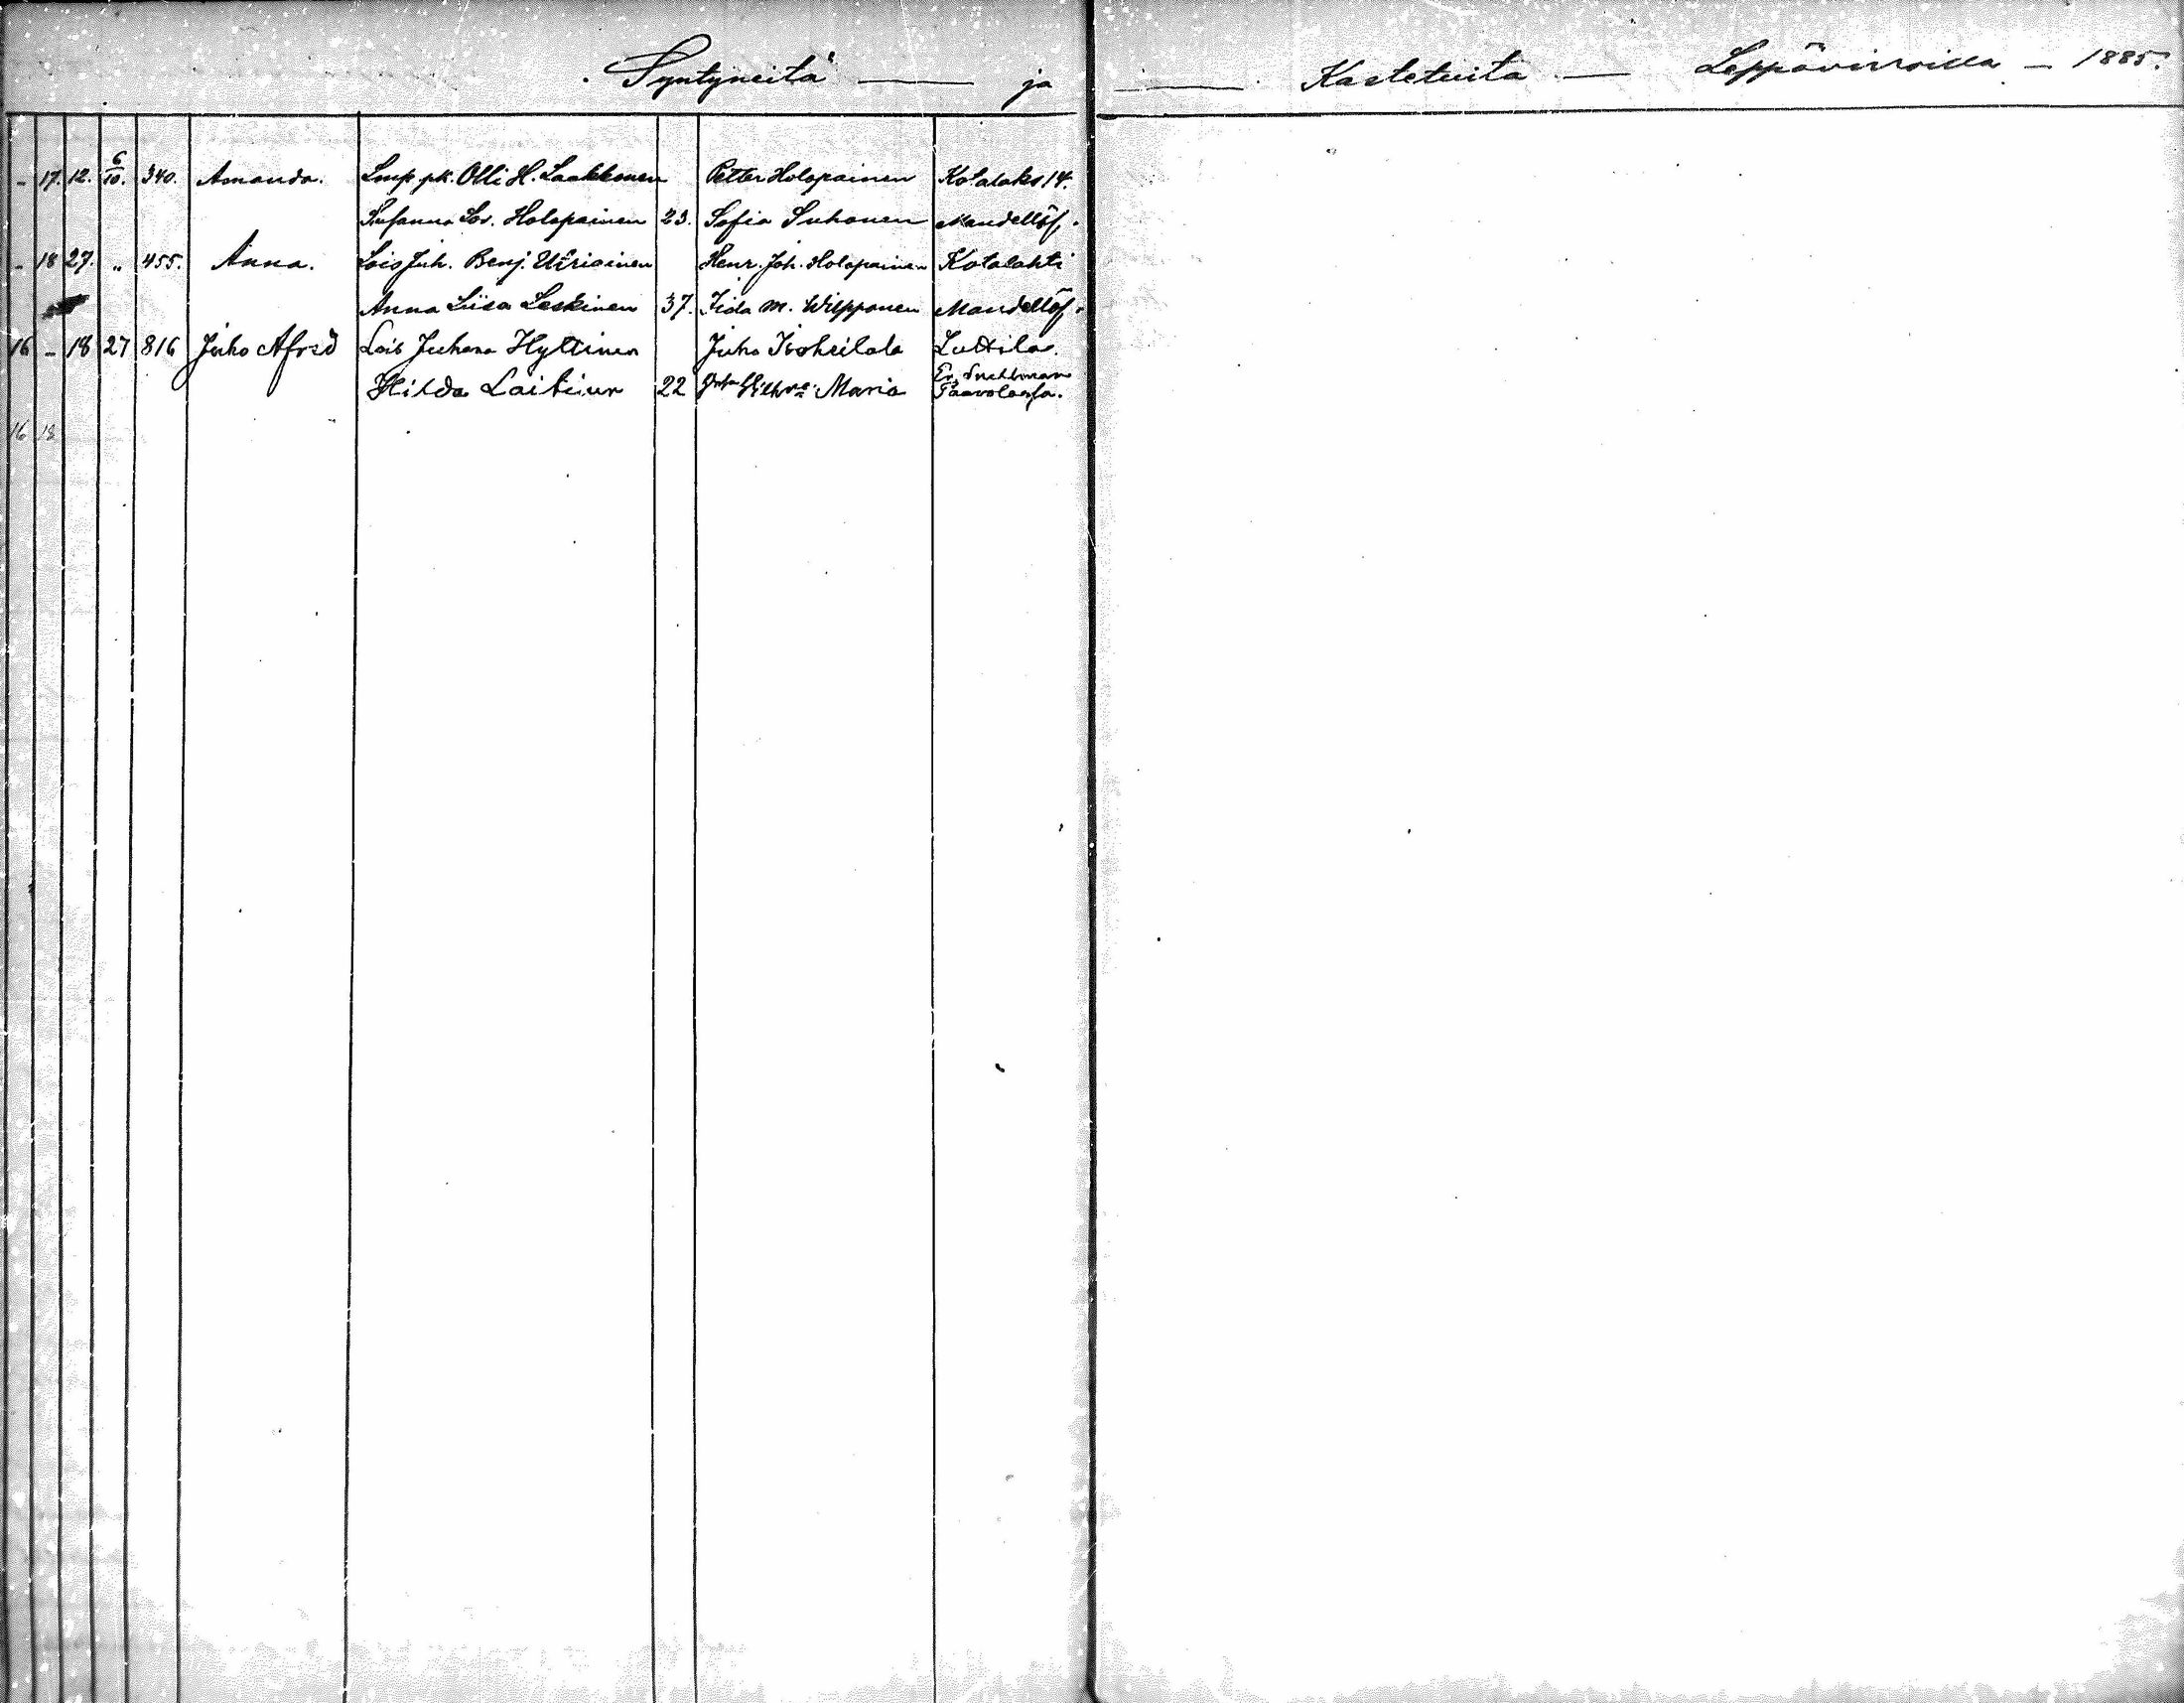 Syntyneitä — ja — Kastetuita — Leppävirroilla — 1885.
- 17. 12. 6/10. 340. Amanda. Lmp. pk. Olli H. Laakkonen Petter Holopainen Kotalaks 14.
Susanna Lov. Holopainen 23. Sofia Suhonen Mandellöf.
- 18 27. „ 455. Anna. Lois Juh. Benj. Himanen Henr. Joh. Holopainen Kotalahti
Anna Liisa Leskinen 37. Iida M. Wilpponen Mandellöf.
16 - 18 27 816 Juho Afred Lois Juhana Hyttinen Juho
Hilda Laitinen 22 Maria
16 18